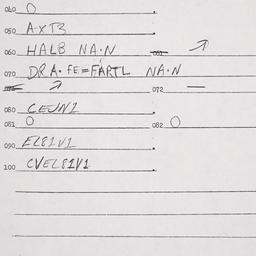 040 O
050 A×TB
060 HALB NA·N 061
070 DRA·FE=FARTL NA·N
072 —
080 CEJN1
081 O 082 O
090 ELE1V1
100 CVELE1V1